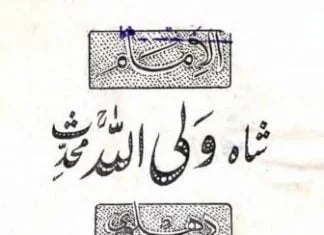 الامام
شاہ ولی اللہؒ محدث
دہلوی